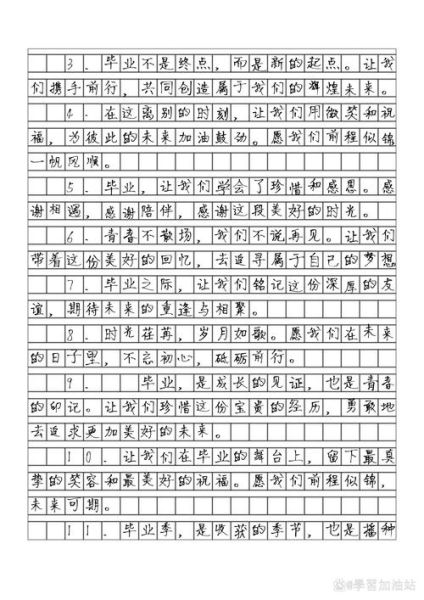 3. 毕业不是终点，而是新的起点。让我
们携手前行，共同创造属于我们的辉煌未来。
4. 在这离别的时刻，让我们用微笑和祝
福，为彼此的未来加油鼓劲。愿我们前程似锦
一帆风顺。
5. 毕业，让我们学会了珍惜和感恩。感
谢相遇，感谢陪伴，感谢这段美好的时光。
6. 青春不散场，我们不说再见。让我们
带着这份美好的回忆，去追寻属于自己的梦想
7. 毕业之际，让我们铭记这份深厚的友
谊，期待未来的重逢与相聚。
8. 时光荏苒，岁月如歌。愿我们在未来
的日子里，不忘初心，砥砺前行。
9. 毕业，是成长的见证，也是青春
的印记。让我们珍惜这份宝贵的经历，勇敢地
去追求更加美好的未来。
10. 让我们在毕业的舞台上，留下最真
挚的笑容和最美好的祝福。愿我们前程似锦，
未来可期。
11. 毕业季，是收获的季节，也是播种
學習加油站